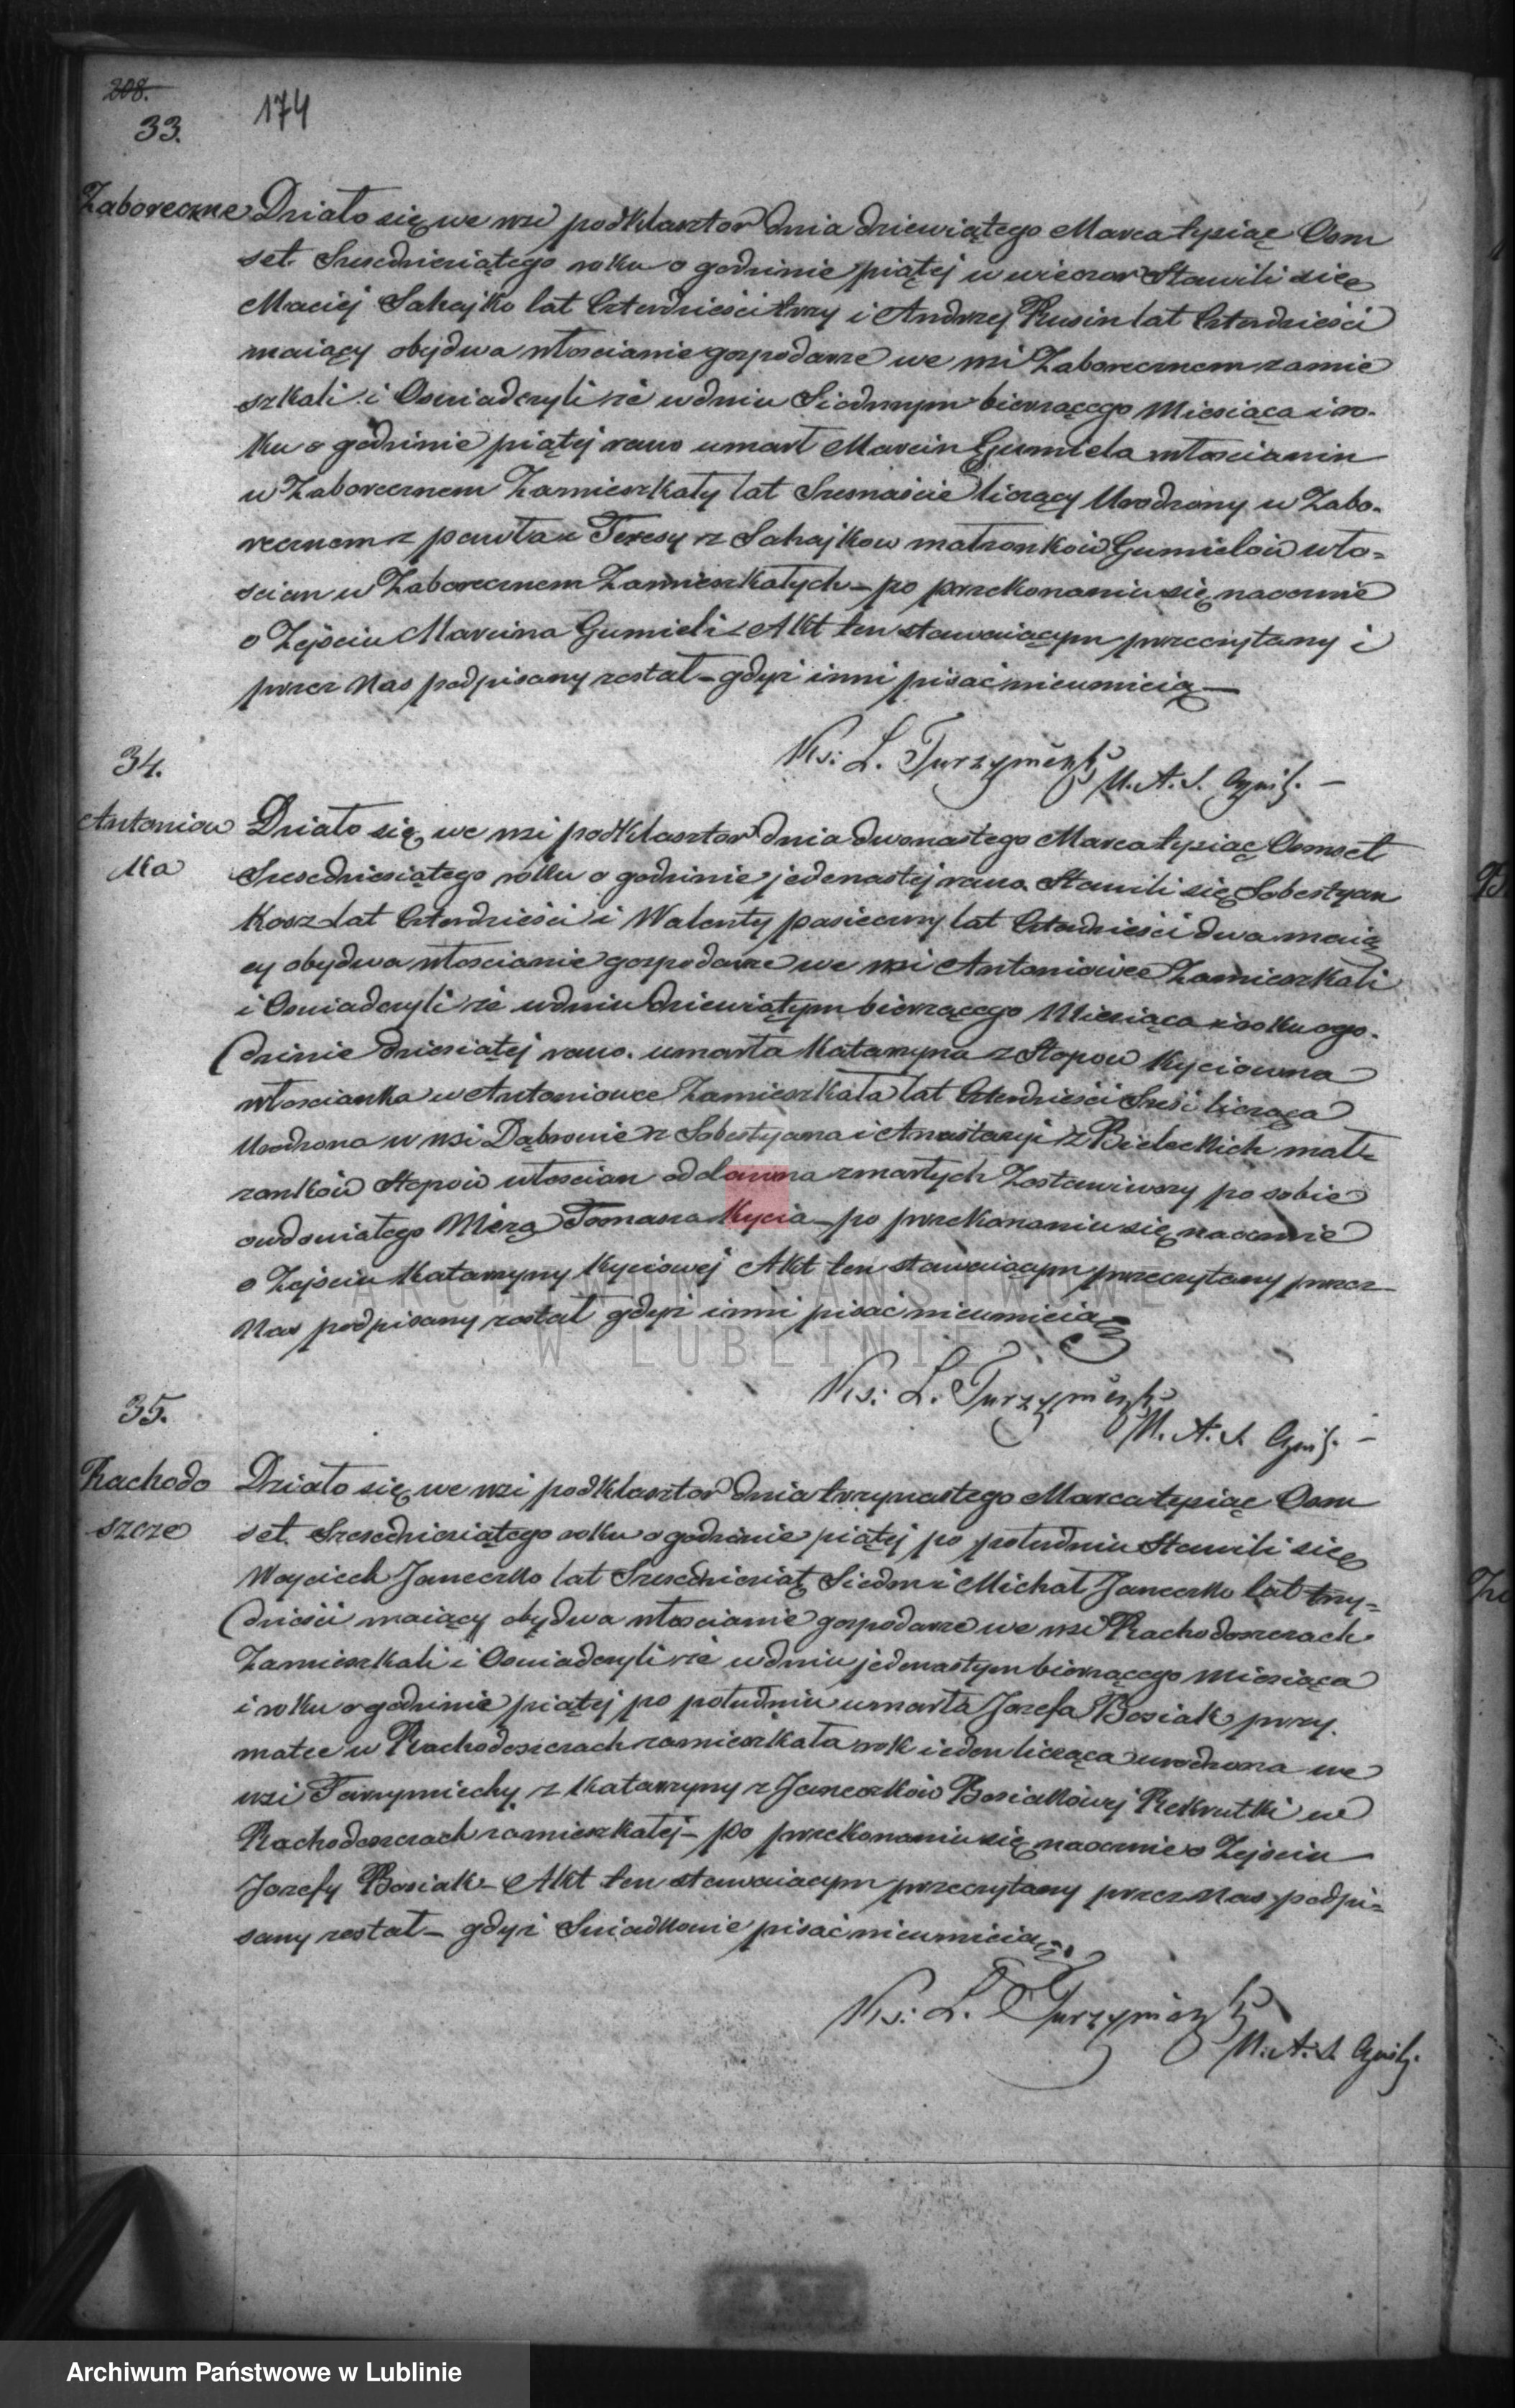 208.
33.
174
Zaboreczne Działo się we wsi podklasztor dnia dziewiątego Marca tysiąc Osm
set. Szescdziesiątego roku o godzinie piątej w wieczor Stawili się
Maciej Sahajko lat Czterdzieści trzy i Andrzej Rusin lat Czterdzieści
maiący obydwa włoscianie gospodarze we wsi Zaborecznem zamie
szkali i Oswiadczyli że w dniu Siodmym bierzącego Miesiąca i ro-
ku o godzinie piątej rano umarł Marcin Gumiela włoscianin
w Zaborecznem Zamieszkały lat Szesnaście liczący Urodzony w Zabo-
recznem z pawła i Teresy z Sahajkow małzonków Gumielów wło-
scian w Zaborecznem Zamieszkałych – po przekonaniu się naocznie
o Zejściu Marcina Gumieli Akt ten stawaiącym przeczytany i
przez Nas podpisany został – gdyż inni pisać nieumieią –
Ks: L. Turzyminski
U. A. S. Cywil. –
34.
Antoniow Działo się we wsi podklasztor dnia dwonastego Marca tysiąc Osmset
ka Szescdziesiątego roku o godzinie jedenastej rano Stawili się Sobestyan
Kosz lat Czterdzieści i Walenty pasieczny lat Czterdzieści dwa maią
cy obydwa włoscianie gospodarze we wsi Antoniowce Zamieszkali
i Oswiadczyli że w dniu dziewiątym bierzącego Miesiąca i roku ogo-
dzinie dziesiątej rano. umarła Katarzyna z Stopow Kyciowna
włoscianka w Antoniowce Zamieszkała lat Czterdzieści Sześć licząca
Urodzona w wsi Dąbrowie z Sobestyana i Anastazyi z Bieleckich mał-
zonków Stopów włoscian oddawna zmarłych Zostawiwszy po sobie
owdowiałego Męża Tomasza Kycia – po przekonaniu się naocznie
o Zejściu Katarzyny Kyciowej Akt ten stawaiącym przeczytany przez
Nas podpisany został gdyż inni pisać nieumieią
ARCHIWUM PAŃSTWOWE
W LUBLINIE
Ks: L. Turzyminski
U. A. S. Cywil. –
35.
Rachodo Działo się we wsi podklasztor dnia trzynastego Marca tysiąc Osm
szcze set. Szescdziesiątego roku o godzinie piątej po południu Stawili się
Woyciech Janeczko lat Szescdziesiąt Siedm i Michał Janeczko lat trzy-
dzieści maiący obydwa włoscianie gospodarze we wsi Rachodoszczach
Zamieszkali i Oswiadczyli że w dniu jedenastym bierzącego miesiąca
i roku o godzinie piątej po południu umarła Jozefa Bosiak przy
matce w Rachodoszczach zamieszkała rok ieden licząca urodzona we
wsi Tarzymiechy z Katarzyny z Janeczków Bosiakówej Rekrutki w
Rachodoszczach zamieszkałej – po przekonaniu się naocznie o Zejściu
Jozefy Bosiak – Akt ten stawaiącym przeczytany przez Nas podpi-
sany został – gdyż Swiadkowie pisać nieumieią
Ks: L. Turzyminski
U. A. S. Cywil.
Archiwum Państwowe w Lublinie